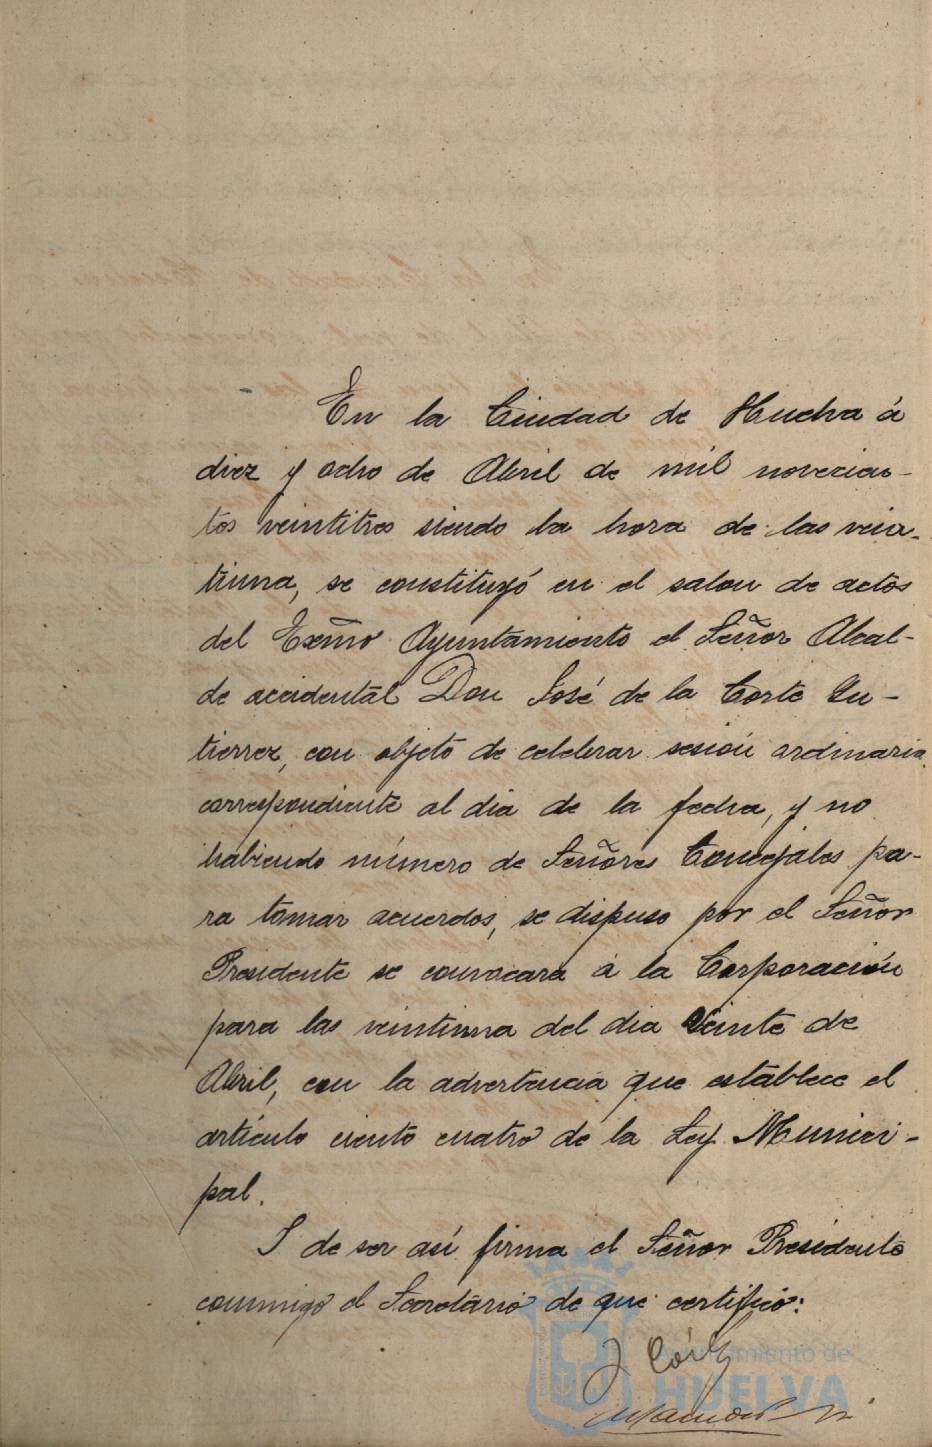 En la Ciudad de Huelva á
diez y ocho de Abril de mil novecien-
tos veintitres siendo la hora de las vein-
tiuna, se constituyó en el salon de actos
del Exmo Ayuntamiento el Señor Alcal-
de accidental Don José de la Corte Gu-
tierrez, con objeto de celebrar sesión ordinaria
correspondiente al dia de la fecha, y no
habiendo número de Señores Concejales pa-
ra tomar acuerdos, se dispuso por el Señor
Presidente se convocara á la Corporación
para las veintiuna del dia veinte de
Abril, con la advertencia que establece el
artículo ciento cuatro de la Ley Munici-
pal.
I de ser así firma el Señor Presidente
conmigo el Secretario de que certifico:
Ayuntamiento de
HUELVA